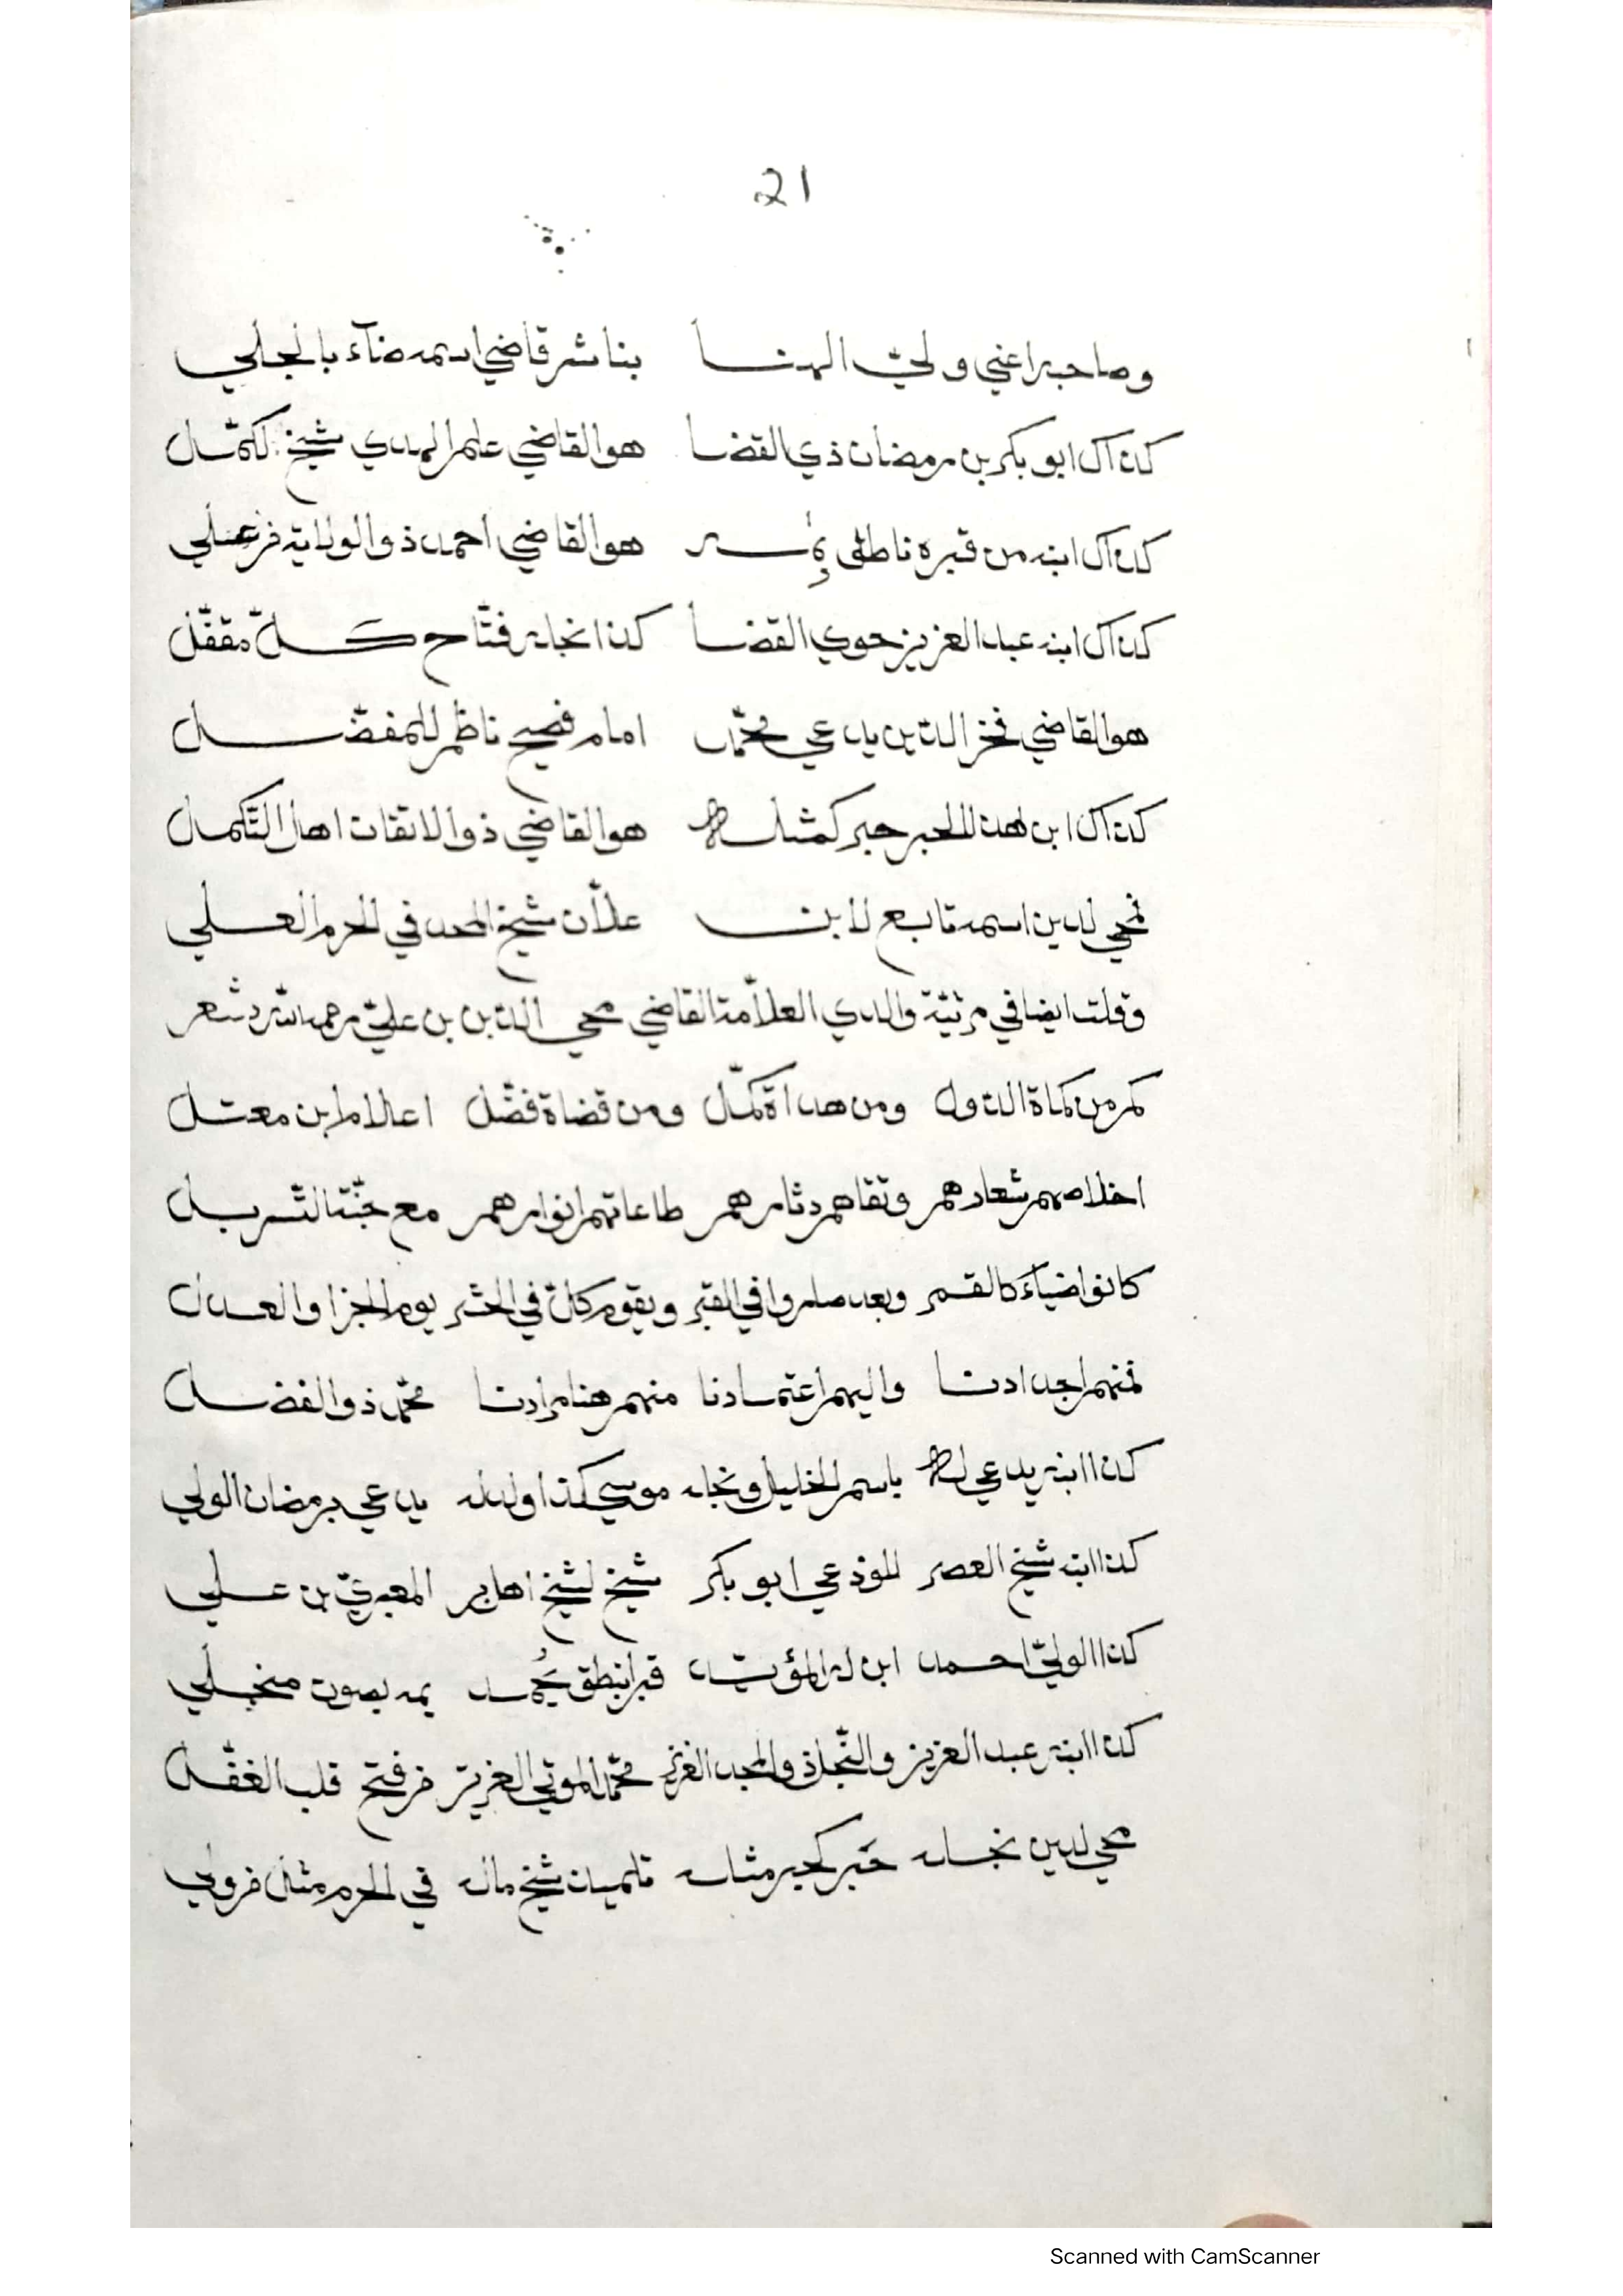 21
وصاحبه اعني ولي الهنا بناشر قاضي اسمه ضآء بالجلي
كذاك ابو بكر بن رمضان ذي القضا هو القاضي علم الهدي شيخ لكمّل
كذاك ابنه من قبره ناطق هو القاضي احمد ذو الولاية فرعلي
كذاك ابنه عبد العزيز حوي القضا كذا نجله فتّاح كلّ مقفّل
هو القاضي فخر الدّين يدعي محمّد امام فصيح ناظم للمفضّل
كذاك ابن هذا الحبر حبر كمثله هو القاضي ذو الاتقان اهل التّكمل
محي لدين اسمه تابع لابن علاّن شيخ المجد في الحرم العلي
وقلت ايضا في مرثيّة والدي العلاّمة القاضي محي الدّين بن عليّ رحمه الله شعر
كم من كماة الدّول ومن هداة كمّل ومن قضاة فضّل اعلام ابن معتل
اخلاصهم شعارهم وتقاهم دثارهم طاعاتهم انوارهم مع جنّة التّسربل
كانوا ضيآء كالقمر وبعد صاروا في القبر ويقوم كلّ في الحشر يوم الجزا والعدل
فمنهم اجدادنا واليهم اعتمادنا منهم هنا مرادنا محمّد ذو الفضل
كذا ابنه يدعي له باسم الخليل ونجله موسي كذا ولد له يدعي برمضان الولي
كذا ابنه شيخ العصر للوذعي ابو بكر شيخ لشيخ اهل بر المعبريّ بن علي
كذا الوليّ احمد ابن له المؤيّد قبرا نطق يُحمد يمه بصوت منجلي
كذا ابنه عبد العزيز والنّجل ذو المجد العزيز محمّد المولي العزيز فرفتح قلب الغفّل
محي لدين نجله حَبر كحبر مثله تلميذ شيخ ماله في الحرم مثل فرولي
Scanned with CamScanner